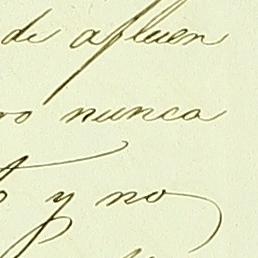 de afluen
nunca
y no